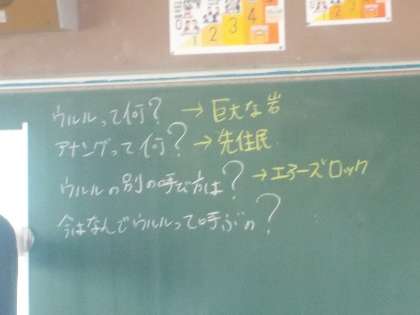 1 2 3 4
ウルルって何? → 巨大な岩
アナングって何? → 先住民
ウルルの別の呼び方は? → エアーズロック
今はなんでウルルって呼ぶの?